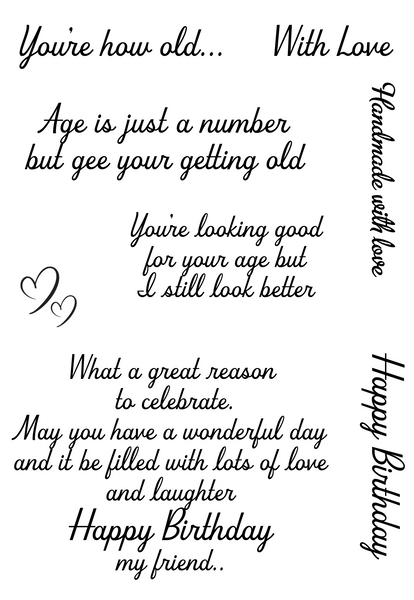 You're how old...
With Love
Handmade with love
Age is just a number
but gee your getting old
You're looking good
for your age but
I still look better
What a great reason
to celebrate.
May you have a wonderful day
and it be filled with lots of love
and laughter
Happy Birthday
my friend..
Happy Birthday